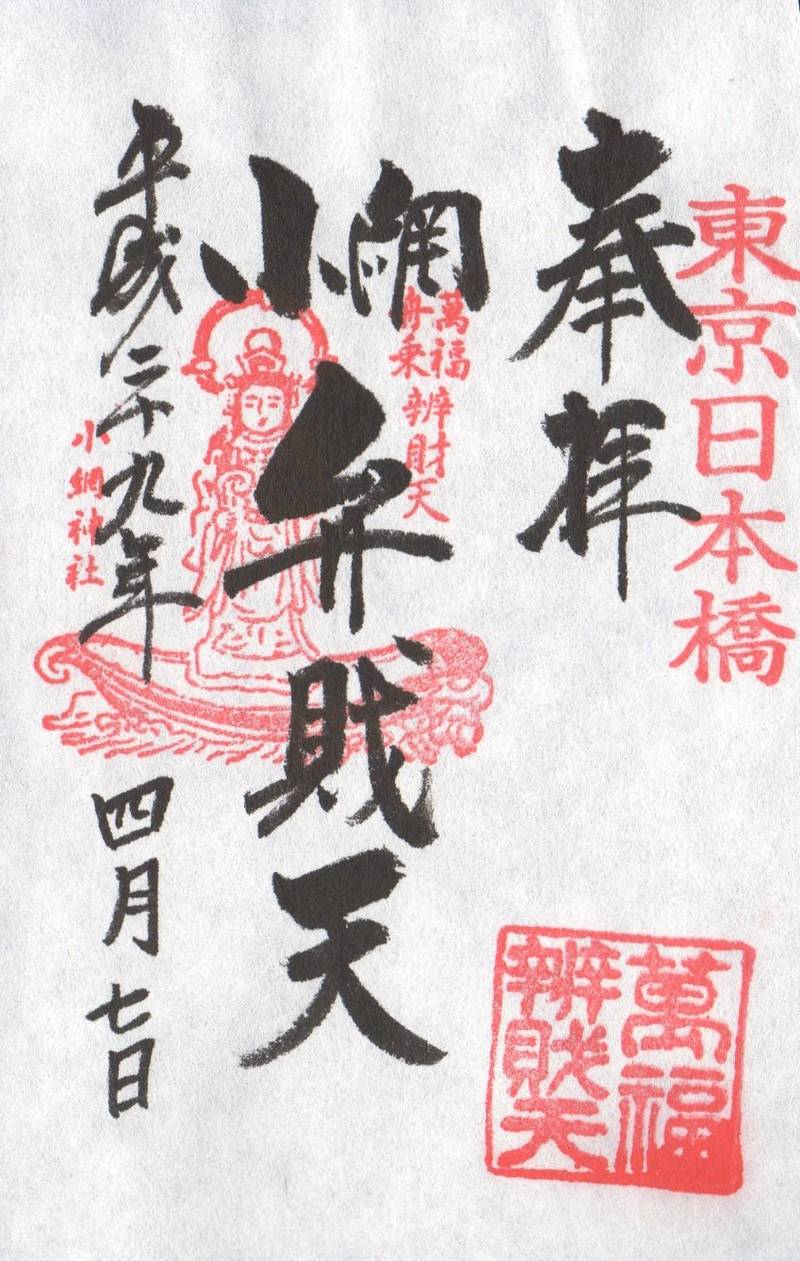 東京日本橋
奉拝
萬福
舟乗辨財天
網小
弁財天
平成二十九年四月七日
小網神社
萬福
辨財天